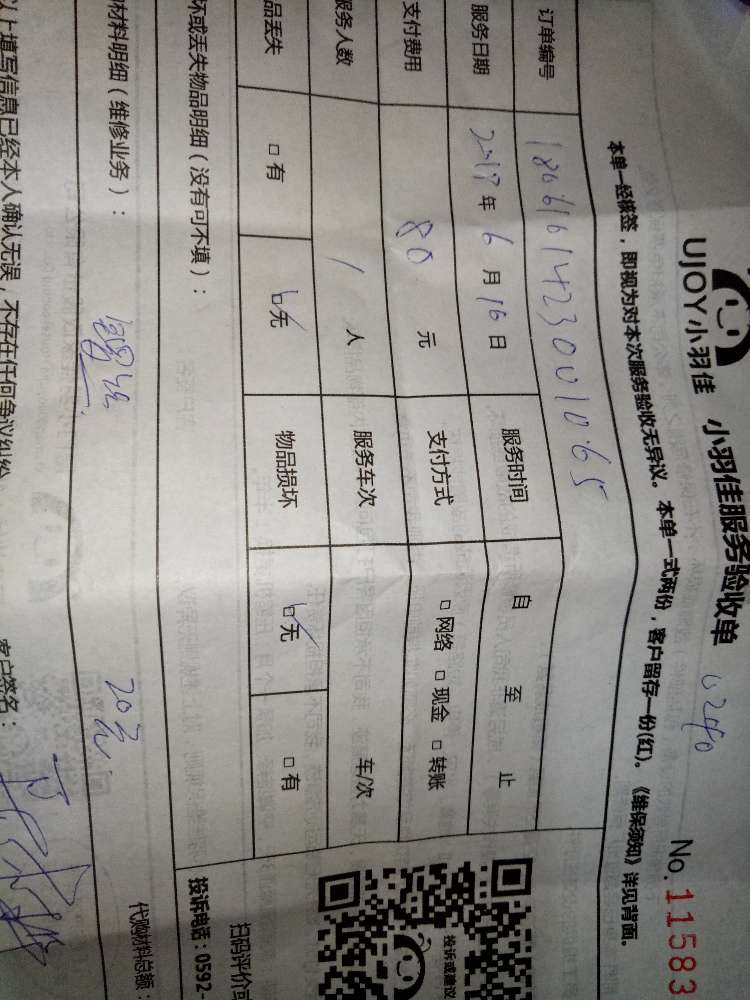 UJOY小羽佳 小羽佳服务验收单 No.11583
本单一经签签，即视为对本次服务验收无异议。本单一式两份，客户留存一份(红)。《维保须知》详见背面。
订单编号 1806161423001065
服务日期 2018年6月16日 服务时间 自 至 止
支付费用 80元 支付方式 □网络 □现金 □转账
服务人数 1人 服务车次 车/次
品丢失 □有 □无 物品损坏 □无 □有
坏或丢失物品明细（没有可不填）：
材料明细（维修业务）： 20元
以上填写信息已经本人确认无误，不存在任何争议纠纷
客户签名：
代购材料总额：
投诉或建议
扫码评价或
投诉电话：0592-